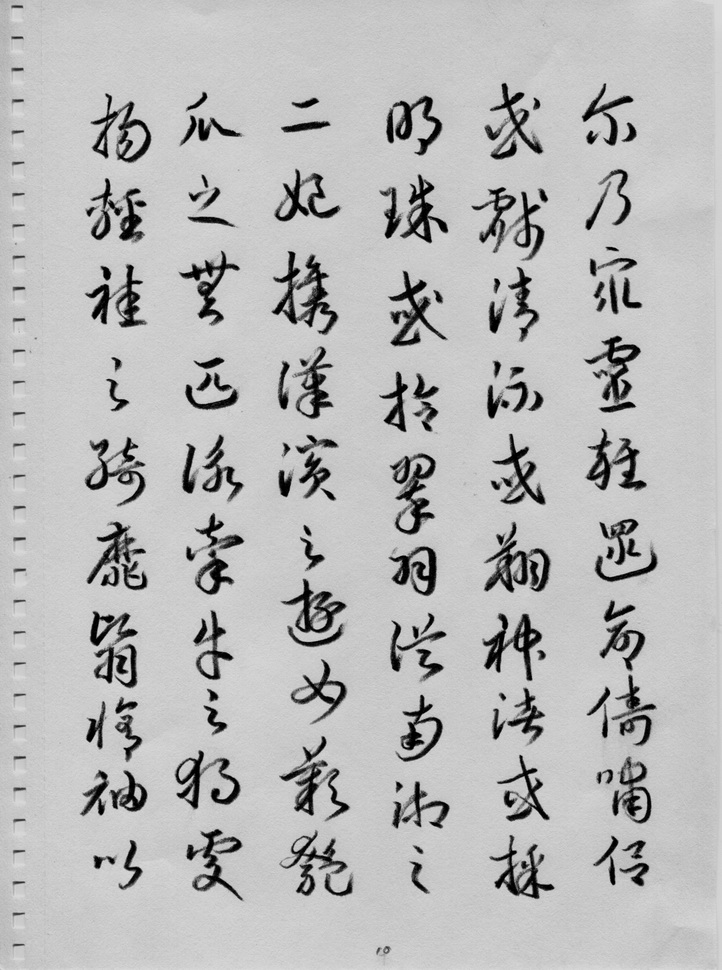 尔乃眾靈雜遝命儔嘯侶
或戲清流或翔神渚或採
明珠或拾翠羽從南湘之
二妃攜漢濱之遊女歎匏
瓜之無匹詠牽牛之獨處
揚輕袿之綺靡翳脩袖以
10